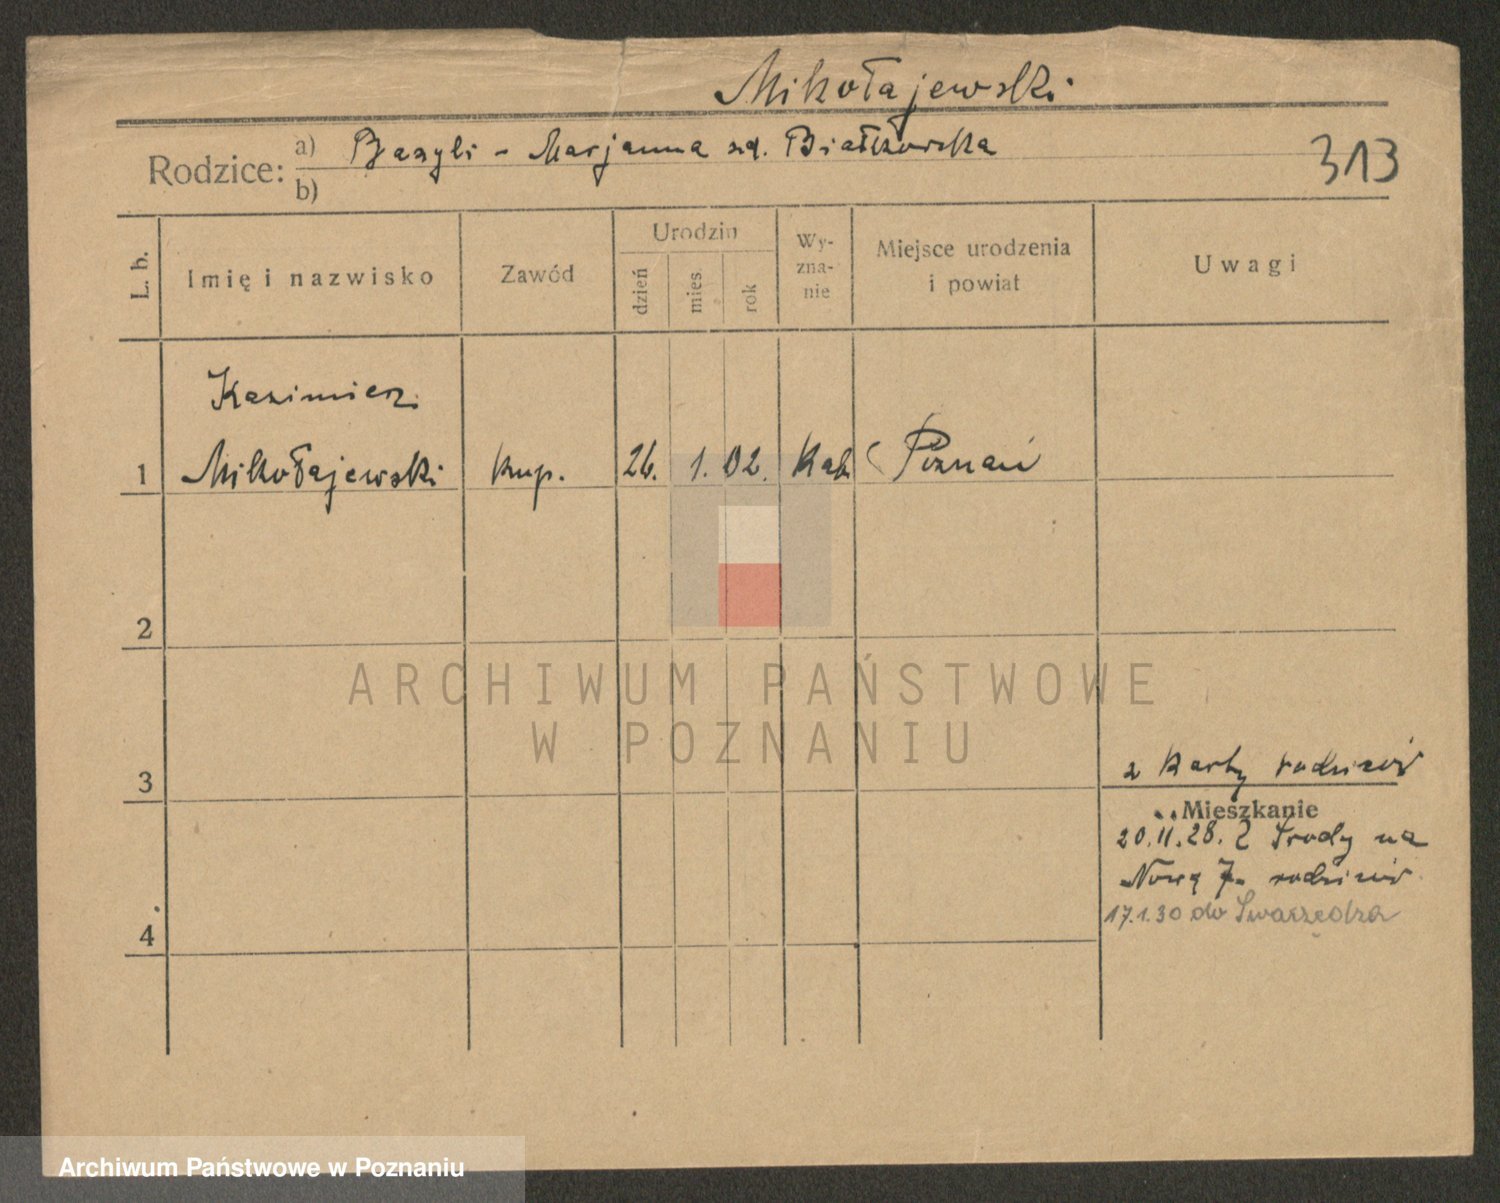 Mikołajewski
Rodzice: a) Bazyli - Marjanna zd. Białkowska
b)
313
L. b.
Imię i nazwisko
Zawód
Urodzin
dzień
mies.
rok
Wy-
zna-
nie
Miejsce urodzenia
i powiat
Uwagi
Kazimierz
1 Mikołajewski kup. 26. 1. 02. Kat. Poznań
2
3
4
z karty rodziców
Mieszkanie
20.11.28. Z Środy na
Nową 7. rodziców
17.1.30 do Swarzędza
ARCHIWUM PAŃSTWOWE
W POZNANIU
Archiwum Państwowe w Poznaniu